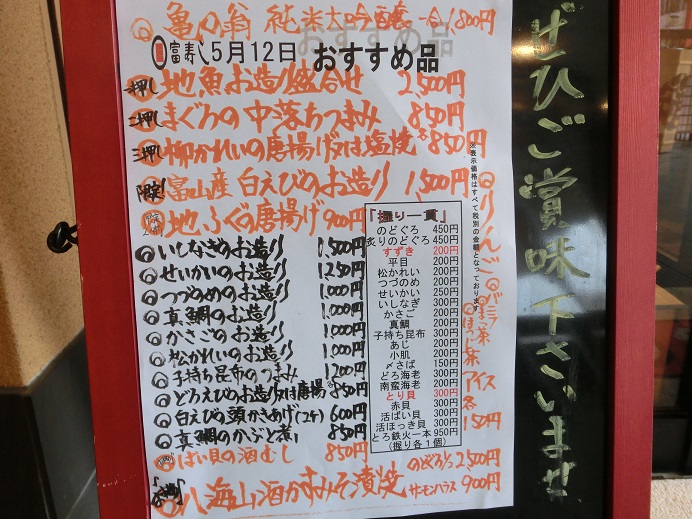 亀の翁 純米大吟醸 一合 1,800円
富寿し 5月12日 おすすめ品
一押し 地魚お造り盛合せ 2,500円
二押し まぐろの中落ちつまみ 850円
三押し 柳かれいの唐揚げ又は塩焼 850円
限定! 富山産 白えびのお造り 1,500円
地ふぐの唐揚げ 900円
いしなぎのお造り 1,500円
せいかいのお造り 1,250円
つづのめのお造り 1,000円
真鯛のお造り 1,000円
かさごのお造り 1,000円
松かれいのお造り 1,000円
子持ち昆布のつまみ 1,200円
どろえびのお造り又は唐揚 850円
白えびの頭かきあげ(2ケ) 600円
真鯛のかぶと煮 850円
ばい貝の酒むし 850円
八海山酒かすみそ漬焼 のどぐろ 2,500円
サーモンハラス 900円
「握り一貫」
のどぐろ 450円
炙りのどぐろ 450円
すずき 200円
平目 200円
松かれい 200円
つづのめ 200円
せいかい 250円
いしなぎ 300円
かさご 200円
真鯛 200円
子持ち昆布 300円
あじ 200円
小肌 200円
〆さば 150円
どろ海老 300円
南蛮海老 200円
とり貝 300円
赤貝 300円
活ばい貝 300円
活ほっき貝 300円
とろ鉄火一本 950円
(握り各1個)
※表示価格はすべて税別の金額となっております
りんご
バニラ
抹茶
ほうじ茶
アイス
各
150円
ぜひご賞味下さいませ